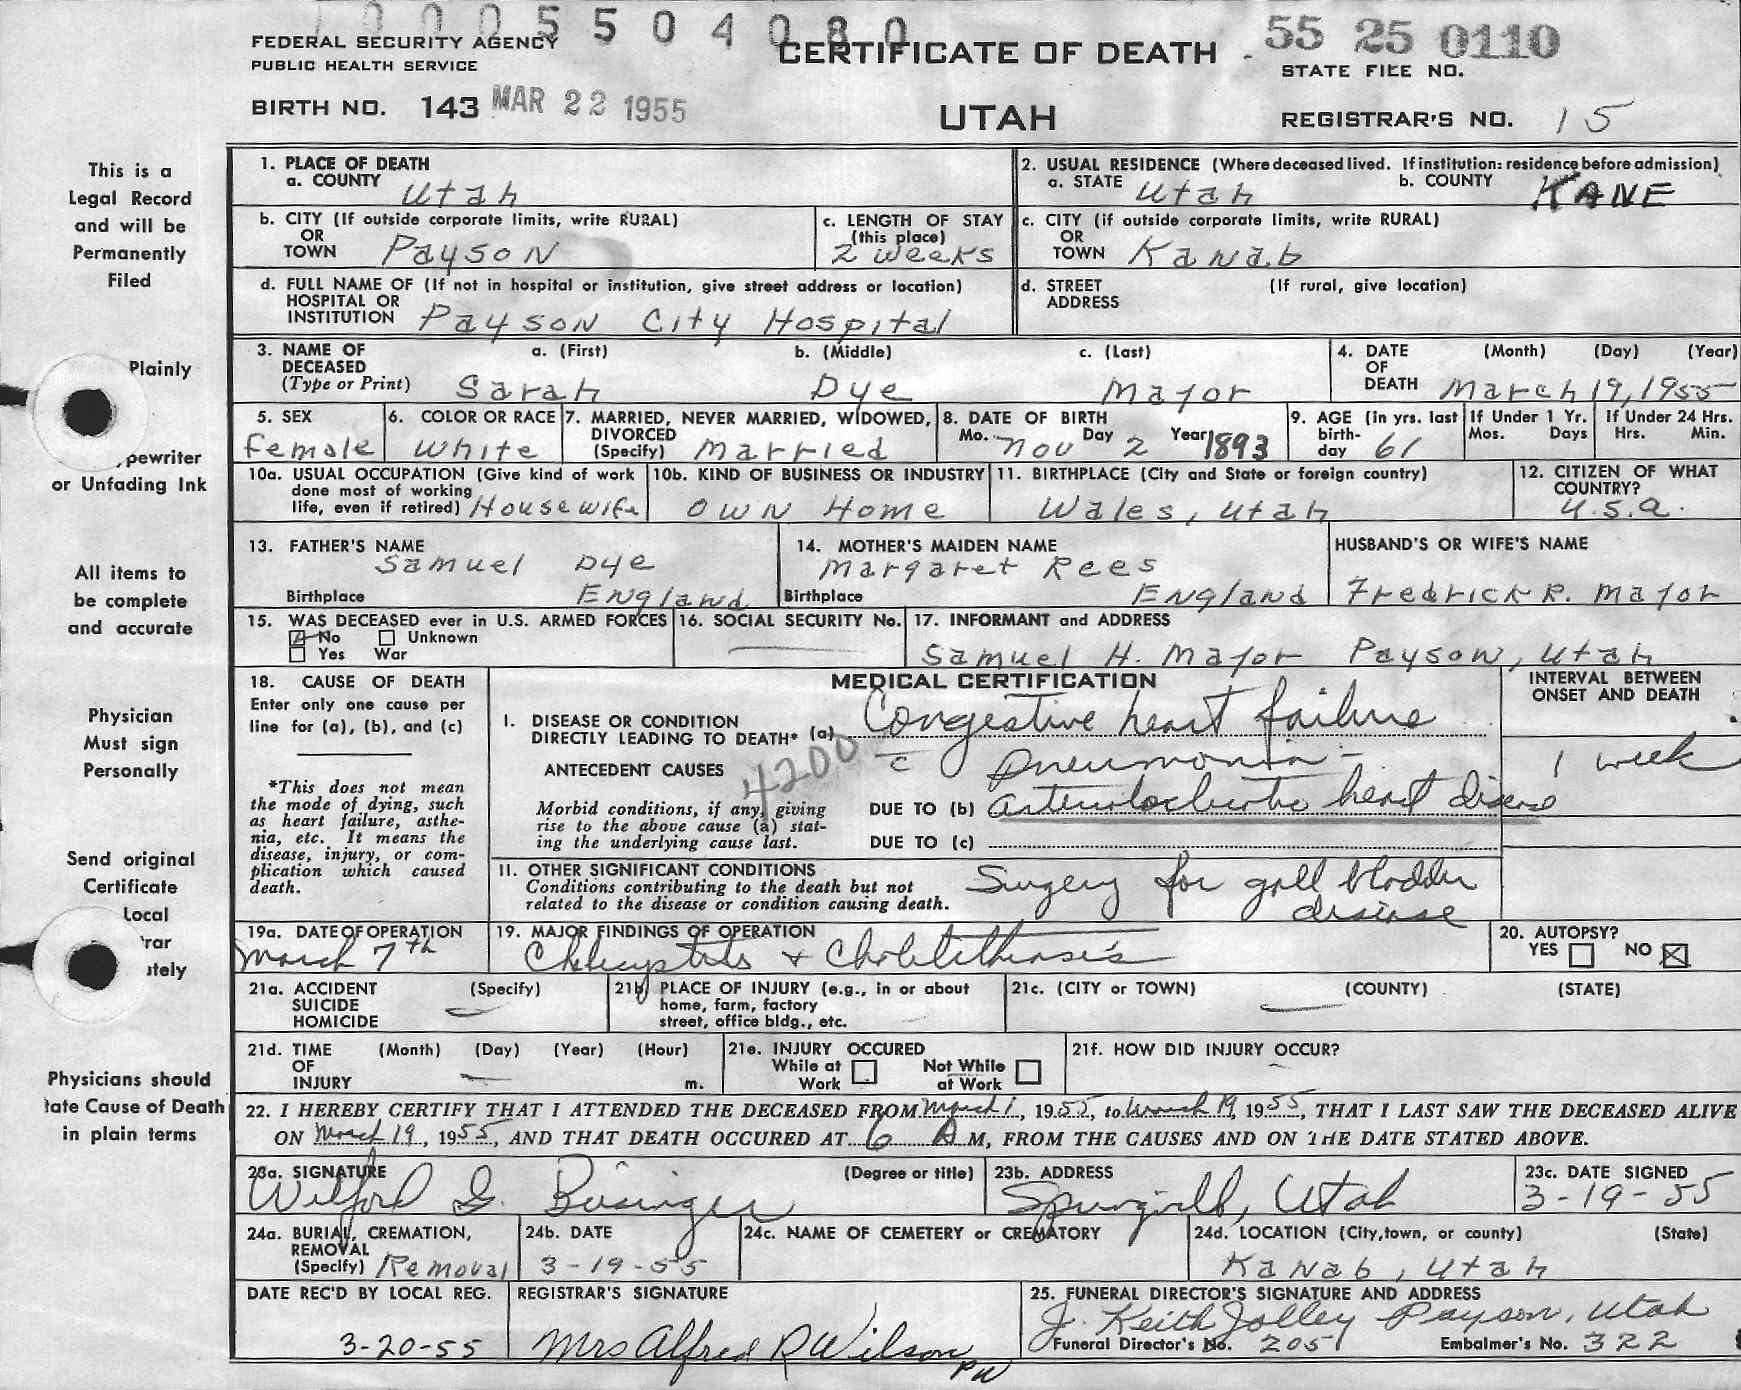 1000550408 0
FEDERAL SECURITY AGENCY
PUBLIC HEALTH SERVICE
CERTIFICATE OF DEATH
55 25 0110
STATE FILE NO.
BIRTH NO. 143 MAR 22 1955
UTAH
REGISTRAR'S NO. 15
This is a
Legal Record
and will be
Permanently
Filed
Plainly
pewriter
or Unfading Ink
All items to
be complete
and accurate
Physician
Must sign
Personally
Send original
Certificate
Local
rar
tely
Physicians should
tate Cause of Death
in plain terms
1. PLACE OF DEATH
a. COUNTY Utah
2. USUAL RESIDENCE (Where deceased lived. If institution: residence before admission)
a. STATE Utah b. COUNTY KANE
b. CITY (If outside corporate limits, write RURAL)
OR
TOWN Payson
c. LENGTH OF STAY
(this place)
2 weeks
c. CITY (if outside corporate limits, write RURAL)
OR
TOWN Kanab
d. FULL NAME OF (If not in hospital or institution, give street address or location)
HOSPITAL OR
INSTITUTION Payson City Hospital
d. STREET (If rural, give location)
ADDRESS
3. NAME OF DECEASED (Type or Print)
a. (First) b. (Middle) c. (Last)
Sarah Dye Major
4. DATE OF DEATH (Month) (Day) (Year)
March 19, 1955
5. SEX
Female
6. COLOR OR RACE
White
7. MARRIED, NEVER MARRIED, WIDOWED,
DIVORCED
(Specify) Married
8. DATE OF BIRTH
Mo. Nov Day 2 Year 1893
9. AGE (in yrs. last
birth-
day 61
If Under 1 Yr.
Mos. Days
If Under 24 Hrs.
Hrs. Min.
10a. USUAL OCCUPATION (Give kind of work
done most of working
life, even if retired) Housewife
10b. KIND OF BUSINESS OR INDUSTRY
Own Home
11. BIRTHPLACE (City and State or foreign country)
Wales, Utah
12. CITIZEN OF WHAT
COUNTRY?
U.S.A.
13. FATHER'S NAME
Samuel Dye
Birthplace England
14. MOTHER'S MAIDEN NAME
Margaret Rees
Birthplace England
HUSBAND'S OR WIFE'S NAME
Fredrick R. Major
15. WAS DECEASED ever in U.S. ARMED FORCES
No Unknown
Yes War
16. SOCIAL SECURITY No.
17. INFORMANT and ADDRESS
Samuel H. Major Payson, Utah
18. CAUSE OF DEATH
Enter only one cause per
line for (a), (b), and (c)
*This does not mean
the mode of dying, such
as heart failure, asthe-
nia, etc. It means the
disease, injury, or com-
plication which caused
death.
MEDICAL CERTIFICATION
INTERVAL BETWEEN
ONSET AND DEATH
I. DISEASE OR CONDITION
DIRECTLY LEADING TO DEATH* (a) Congestive heart failure
c pneumonia - 1 week
ANTECEDENT CAUSES
4200
Morbid conditions, if any, giving
rise to the above cause (a) stat-
ing the underlying cause last.
DUE TO (b) arteriosclerotic heart disease
DUE TO (c)
11. OTHER SIGNIFICANT CONDITIONS
Conditions contributing to the death but not
related to the disease or condition causing death.
Surgery for gall bladder
disease
19a. DATE OF OPERATION
March 7th
19. MAJOR FINDINGS OF OPERATION
Cholecystitis + Cholelithiasis
20. AUTOPSY?
YES NO
21a. ACCIDENT (Specify)
SUICIDE
HOMICIDE
21b. PLACE OF INJURY (e.g., in or about
home, farm, factory
street, office bldg., etc.
21c. (CITY or TOWN) (COUNTY) (STATE)
21d. TIME (Month) (Day) (Year) (Hour)
OF
INJURY m.
21e. INJURY OCCURED
While at Work Not While at Work
21f. HOW DID INJURY OCCUR?
22. I HEREBY CERTIFY THAT I ATTENDED THE DECEASED FROM March 1, 1955, to March 19, 1955, THAT I LAST SAW THE DECEASED ALIVE
ON March 19, 1955, AND THAT DEATH OCCURED AT 6 A M, FROM THE CAUSES AND ON THE DATE STATED ABOVE.
23a. SIGNATURE (Degree or title)
Wilford G. Biesinger
23b. ADDRESS
Springville, Utah
23c. DATE SIGNED
3-19-55
24a. BURIAL, CREMATION,
REMOVAL
(Specify) Removal
24b. DATE
3-19-55
24c. NAME OF CEMETERY or CREMATORY
24d. LOCATION (City, town, or county) (State)
Kanab, Utah
DATE REC'D BY LOCAL REG.
3-20-55
REGISTRAR'S SIGNATURE
Mrs Alfred R Wilson
PW
25. FUNERAL DIRECTOR'S SIGNATURE AND ADDRESS
J. Keith Jolley Payson, Utah
Funeral Director's No. 205 Embalmer's No. 322